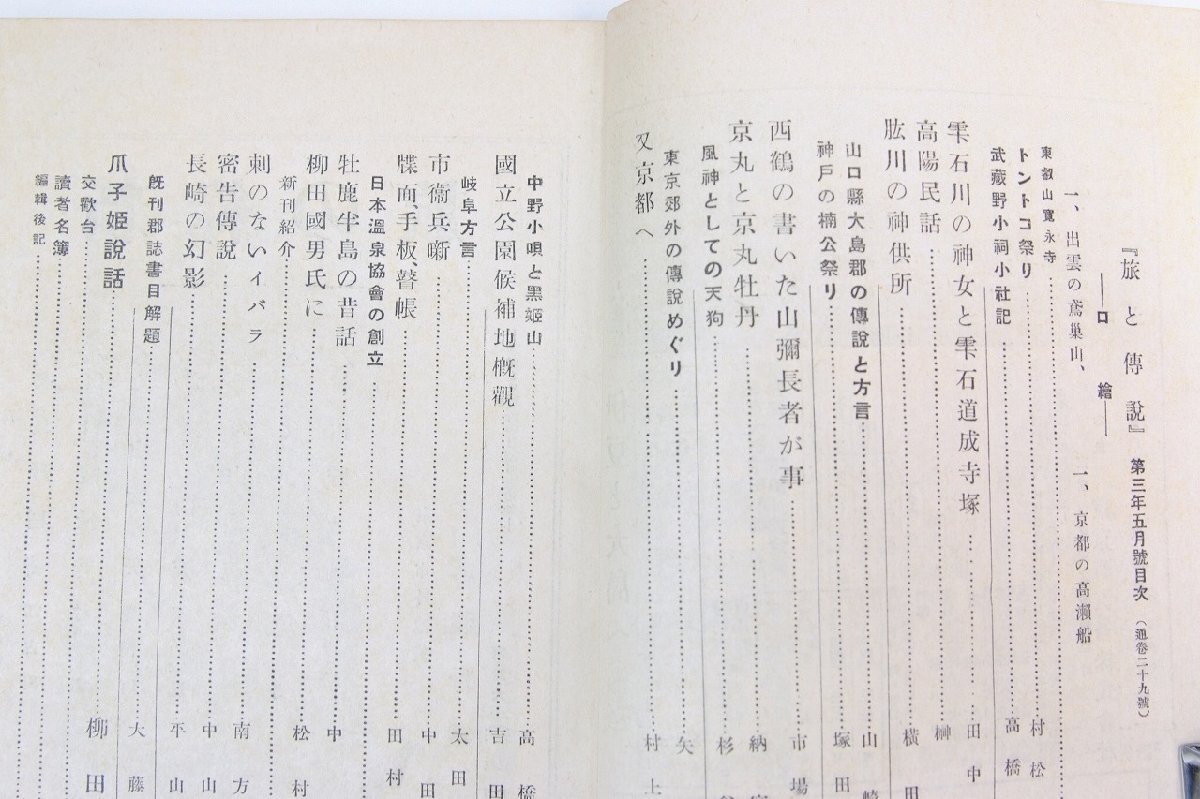 『旅と傳說』第三年五月號目次（通卷二十九號）
――口繪――
一、出雲の鳶巢山、 一、京都の高瀨船
東叡山寬永寺
トントコ祭り 村松
武藏野小祠小社記 高橋
雫石川の神女と雫石道成寺塚 田中
高陽民話 榊
肱川の神供所 橫田
山口縣大島郡の傳說と方言 山崎
神戶の楠公祭り 塚田
西鶴の書いた山彌長者が事 市場
京丸と京丸牡丹 納
風神としての天狗 杉
東京郊外の傳說めぐり 矢
又京都へ 村上
中野小唄と黑姬山 高橋
國立公園候補地槪觀 吉田
岐阜方言 太田
市衞兵噺 中田
牒面、手板、瞽帳 田村
日本溫泉協會の創立
牡鹿半島の昔話 中
柳田國男氏に 松村
新刊紹介
刺のないイバラ 南方
密告傳說 中山
長崎の幻影 平山
旣刊郡誌書目解題 大藤
爪子姬說話 柳田
交歡台
讀者名簿
編輯後記